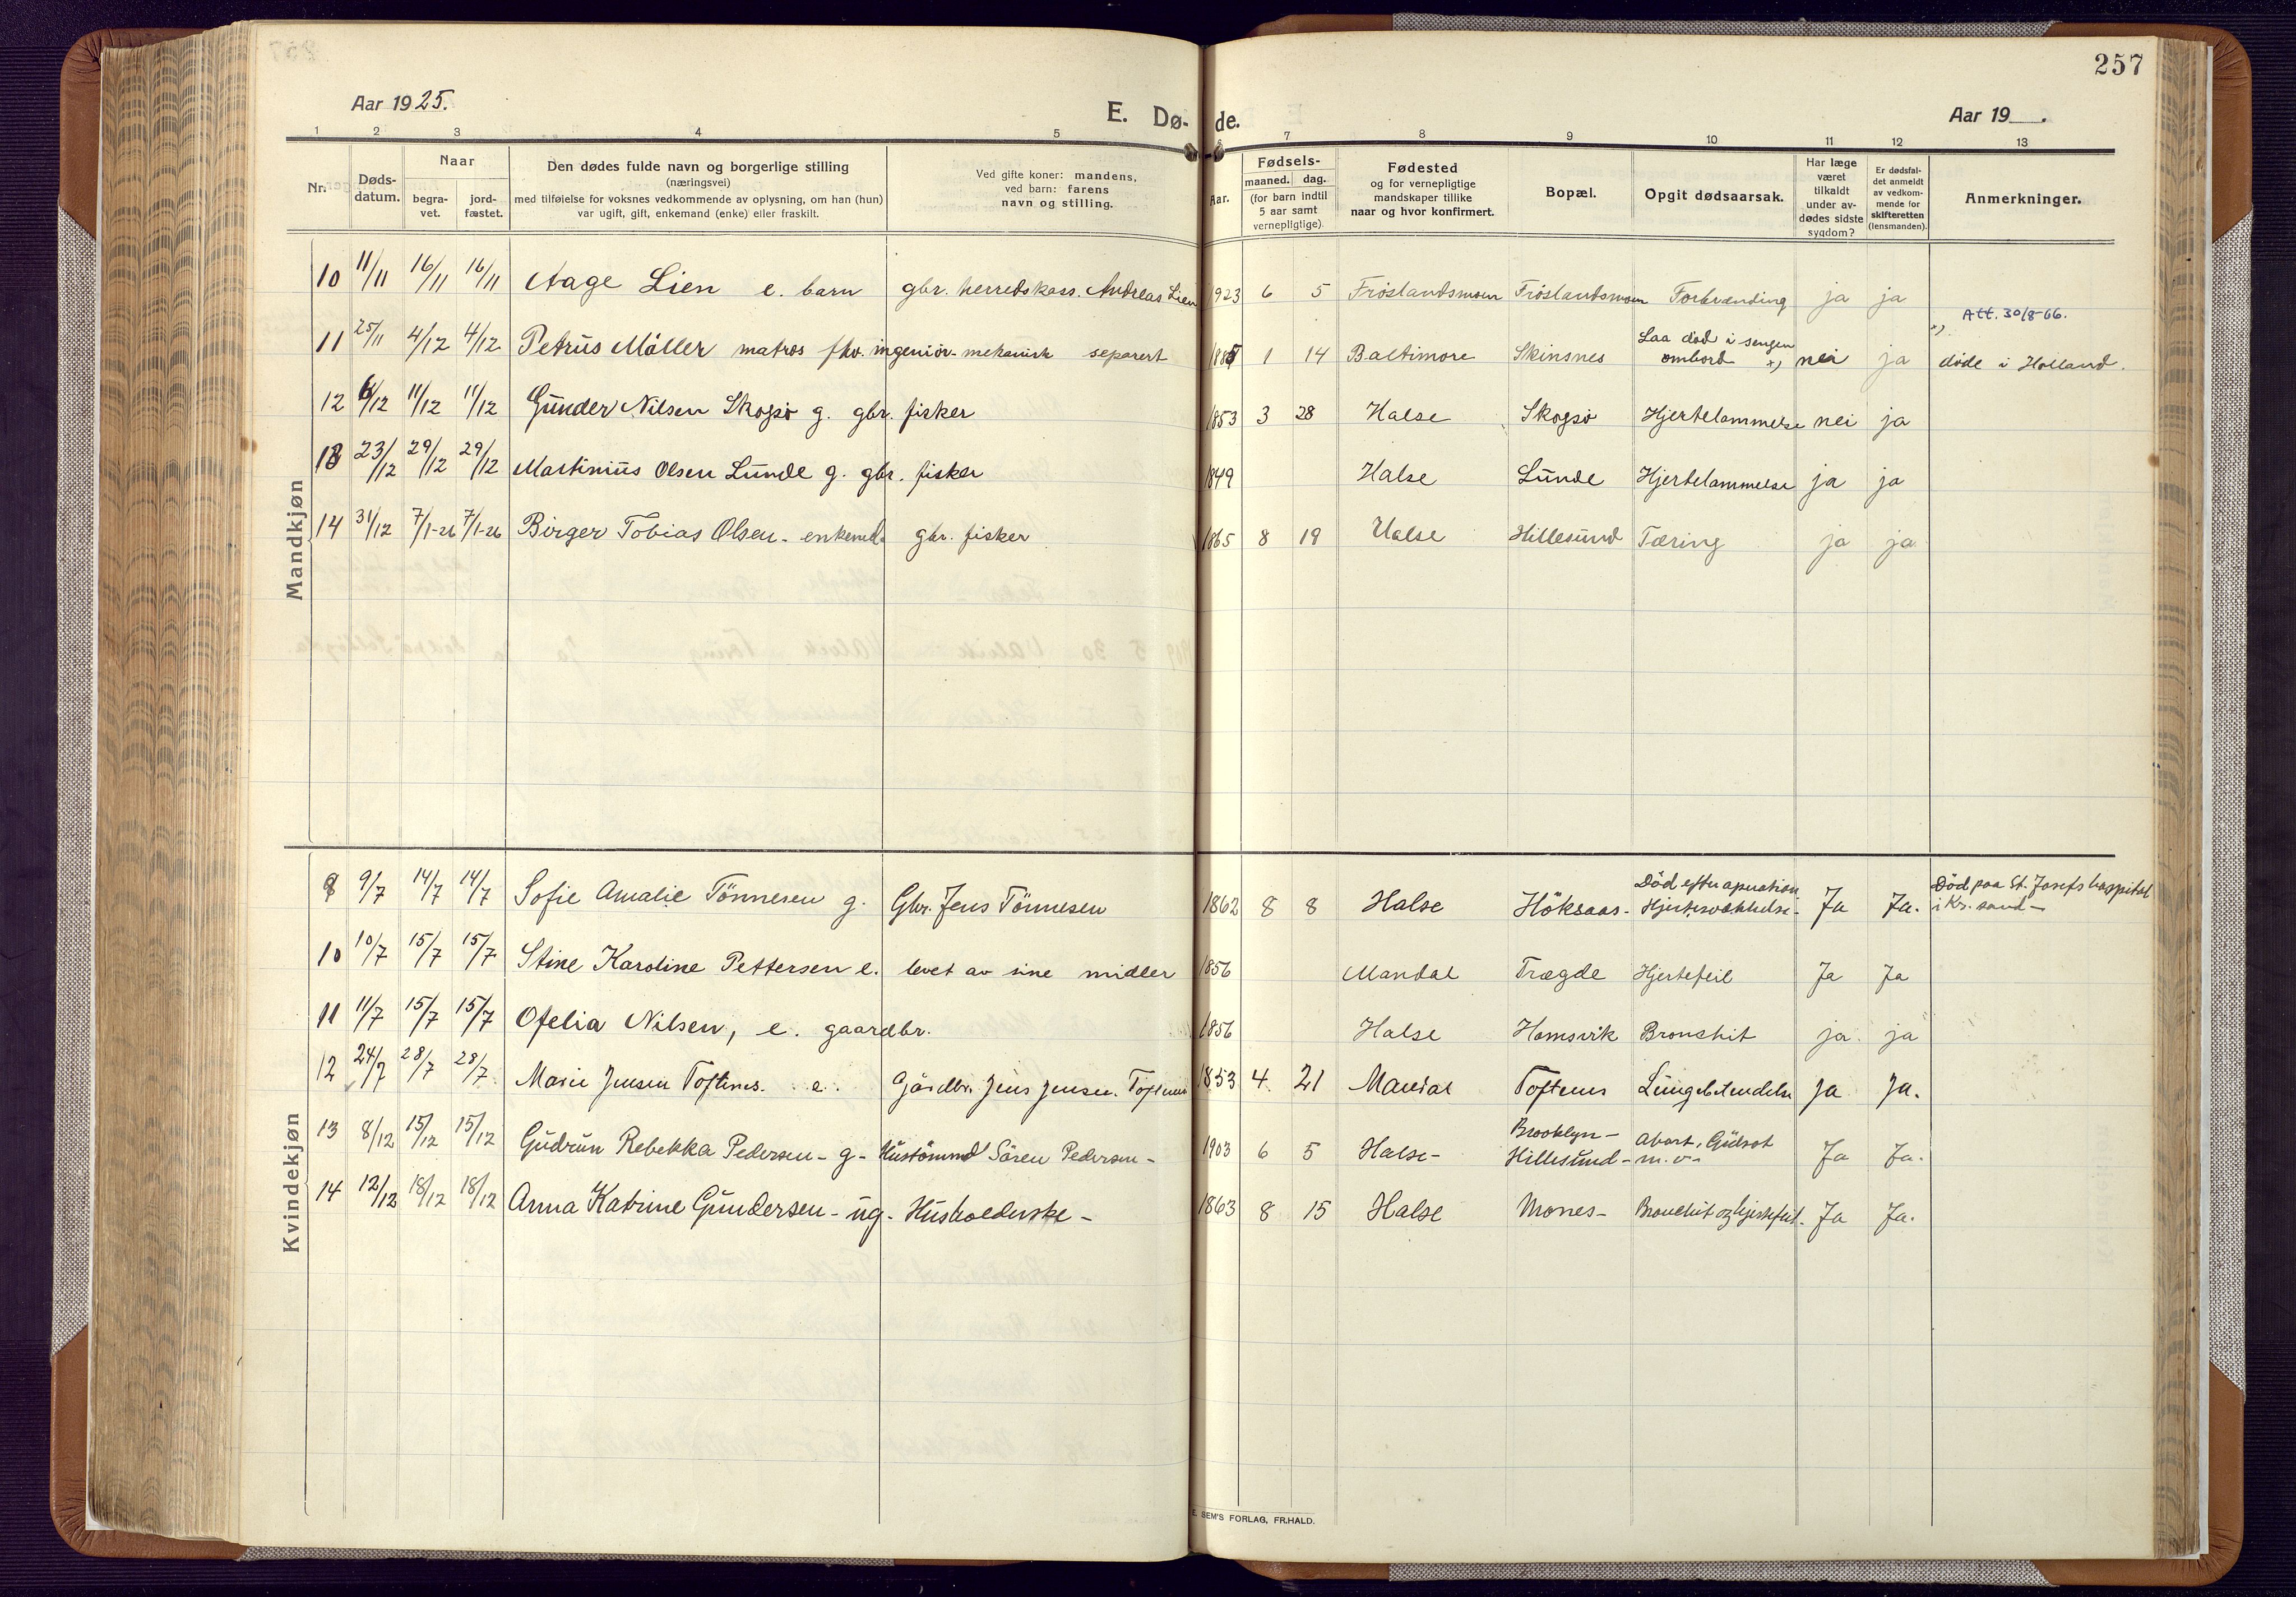 257
Aar 1925.
E. Dø- de.
Aar 19__.
1 2 3 4 5 6 7 8 9 10 11 12 13
Nr.
Døds-
datum.
Naar
begra-
vet.
jord-
fæstet.
Den dødes fulde navn og borgerlige stilling
(næringsvei)
med tilføielse for voksnes vedkommende av oplysning, om han (hun)
var ugift, gift, enkemand (enke) eller fraskilt.
Ved gifte koner: mandens,
ved barn: farens
navn og stilling.
Aar.
Fødsels-
maaned. dag.
(for barn indtil
5 aar samt
vernepligtige)
Fødested
og for vernepligtige
mandskaper tillike
naar og hvor konfirmert.
Bopæl.
Opgit dødsaarsak.
Har læge
været
tilkaldt
under av-
dødes sidste
sygdom?
Er dødsfal-
det anmeldt
av vedkom-
mende for
skifteretten
(lensmanden).
Anmerkninger.
Mandkjøn
10 11/11 16/11 16/11 Aage Lien e. barn gbr. herredskass. Andreas Lien 1923 6 5 Frøslandsmoen Frøslandsmoen Forbrænding ja ja
Att. 30/8-66.
11 25/11 4/12 4/12 Petrus Møller matros fhv. ingeniør-mekanisk separert 1885 1 14 Baltimore Skinsnes Laa død i sengen ombord x) nei ja x) døde i Holland.
12 6/12 11/12 11/12 Gunder Nilsen Skogsø g. gbr. fisker 1853 3 28 Halse Skogsø Hjertelammelse nei ja
13 23/12 29/12 29/12 Martinius Olsen Lunde g. gbr. fisker 1849 Halse Lunde Hjertelammelse ja ja
14 31/12 7/1-26 7/1-26 Birger Tobias Olsen - enkemd. gbr. fisker 1865 8 19 Halse Hillesund Tæring ja ja
Kvindekjøn
9 9/7 14/7 14/7 Sofie Amalie Tönnesen g. Gbr. Jens Tönnesen 1862 8 8 Halse Höksaas- Död efter operation Hjertesvækkelse- Ja Ja. Död paa St. Josefs hospital i Kr.sand-
10 10/7 15/7 15/7 Stine Karoline Pettersen e. levet av sine midler 1856 Mandal Trægde Hjertefeil Ja Ja
11 11/7 15/7 15/7 Ofelia Nilsen, e. gaardbr. 1856 Halse Homsvik Bronchit ja ja
12 24/7 28/7 28/7 Marie Jensen Toftenes. e. Gårdbr. Jens Jensen Toftenes 1853 4 21 Mandal Toftenes Lungebetendelse Ja Ja.
13 8/12 15/12 15/12 Gudrun Rebekka Pedersen - g - Hustömmd Sören Pedersen - 1903 6 5 Halse- Brooklyn- Hillesund- Abort, Gulsot m.v- Ja Ja.
14 12/12 18/12 18/12 Anna Katrine Gundersen - ug. Husholderske - 1863 8 15 Halse Mones- Bronchit og hjertefeil. Ja Ja.
E. SEM'S FORLAG, FR.HALD.